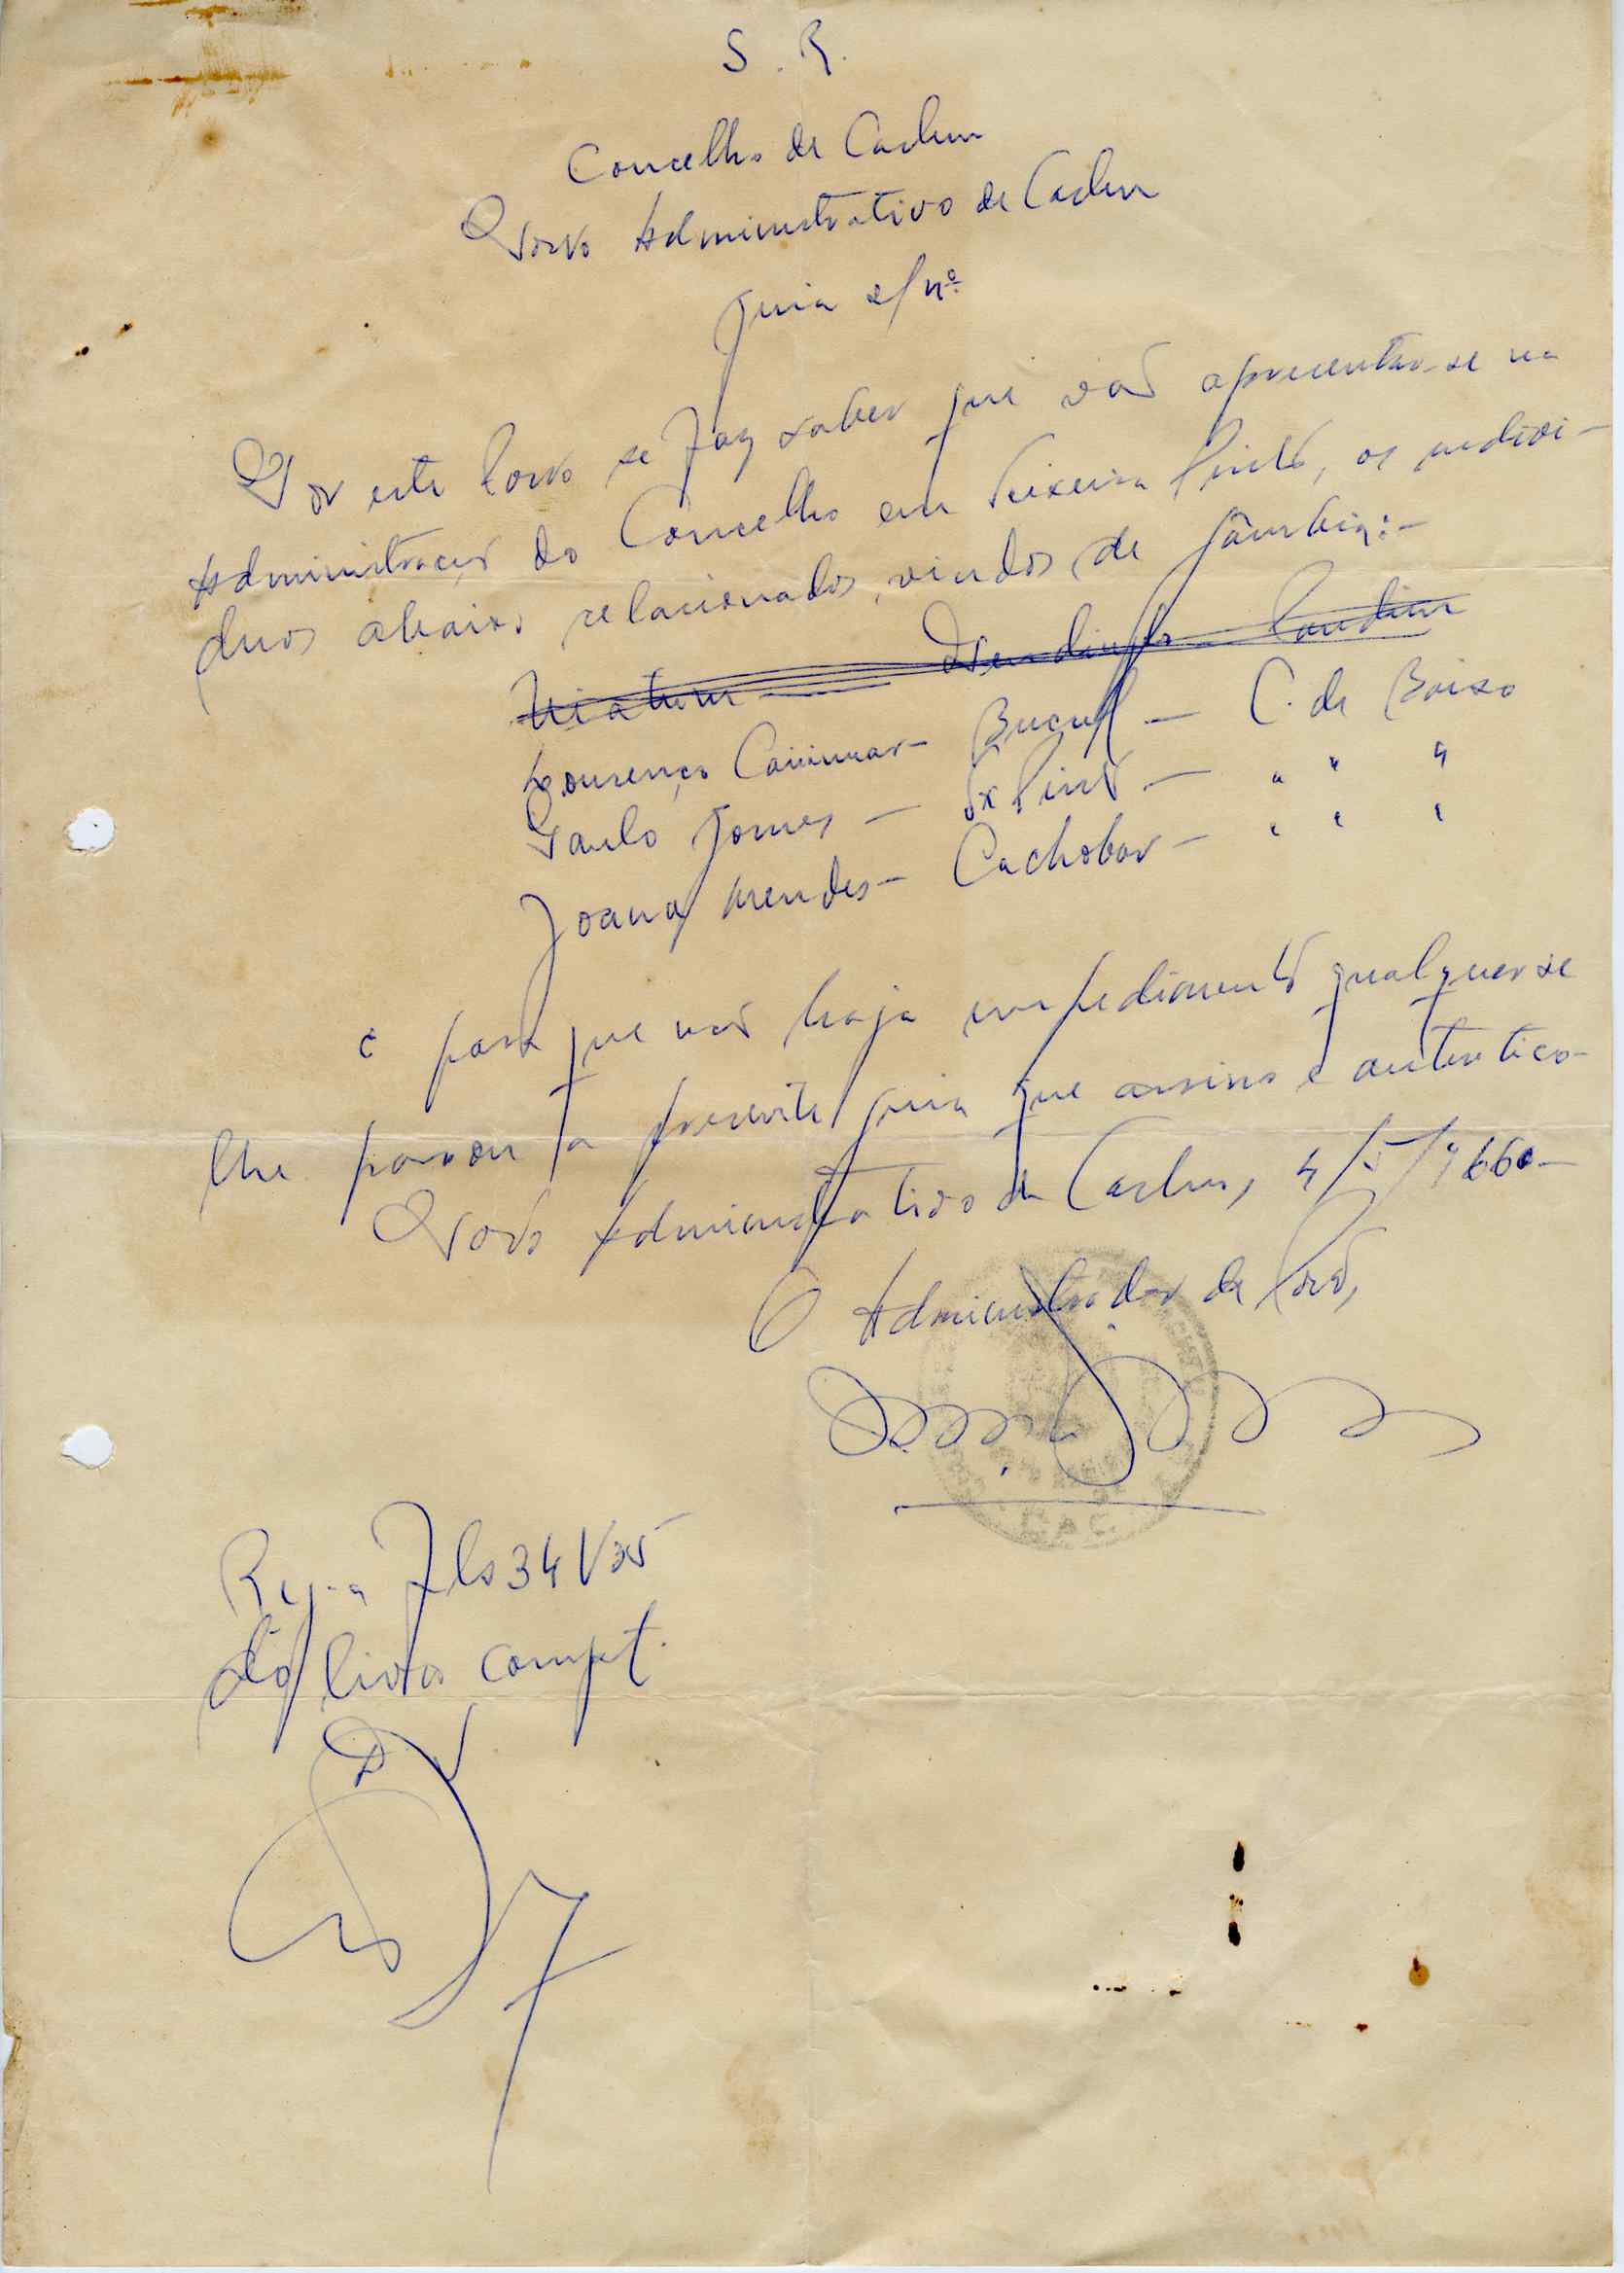 S. R.
Concelho de Cacheu
Posto Administrativo de Cacheu
Guia s/nº
Por este Posto se faz saber que vão apresentar-se na
Administração do Concelho em Teixeira Pinto, os indivi-
duos abaixo relacionados, vindos de Gâmbia:-
Lourenço Caiumar - Bucul - C. de Baixo
Paulo Gomes - Tx Pinto - " " "
Joana Mendes - Cachobar - " " "
E para que não haja impedimento qualquer se
lhe passou a presente guia que assino e autentico-
Posto Administrativo de Cacheu, 4/5/966.-
O Administrador de Posto,
C.A.C.
Reg. a fls 34 V
do livro compt.